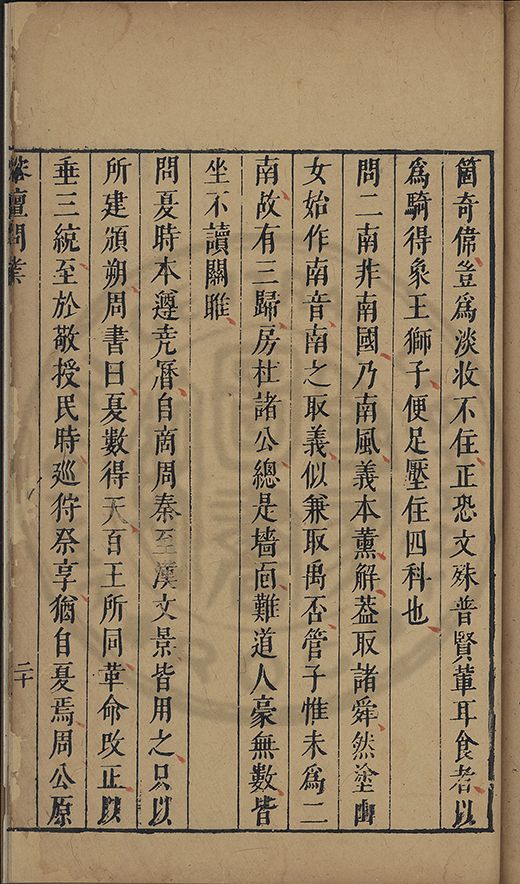 箇奇偉豈爲淡收不住正恐文殊普賢軰耳食者以
爲騎得象王獅子便足壓住四科也
問二南非南國乃南風義本薰解葢取諸舜然塗山
女始作南音南之取義似兼取禹否管子惟未爲二
南故有三歸房杜諸公總是墻面難道人豪無數皆
坐不讀關雎
問夏時本遵尭曆自商周秦至漢文景皆用之只以
所建頒朔周書曰夏數得天百王所同革命改正以
垂三統至於敬授民時巡狩祭享猶自夏焉周公原
壇問業
二十